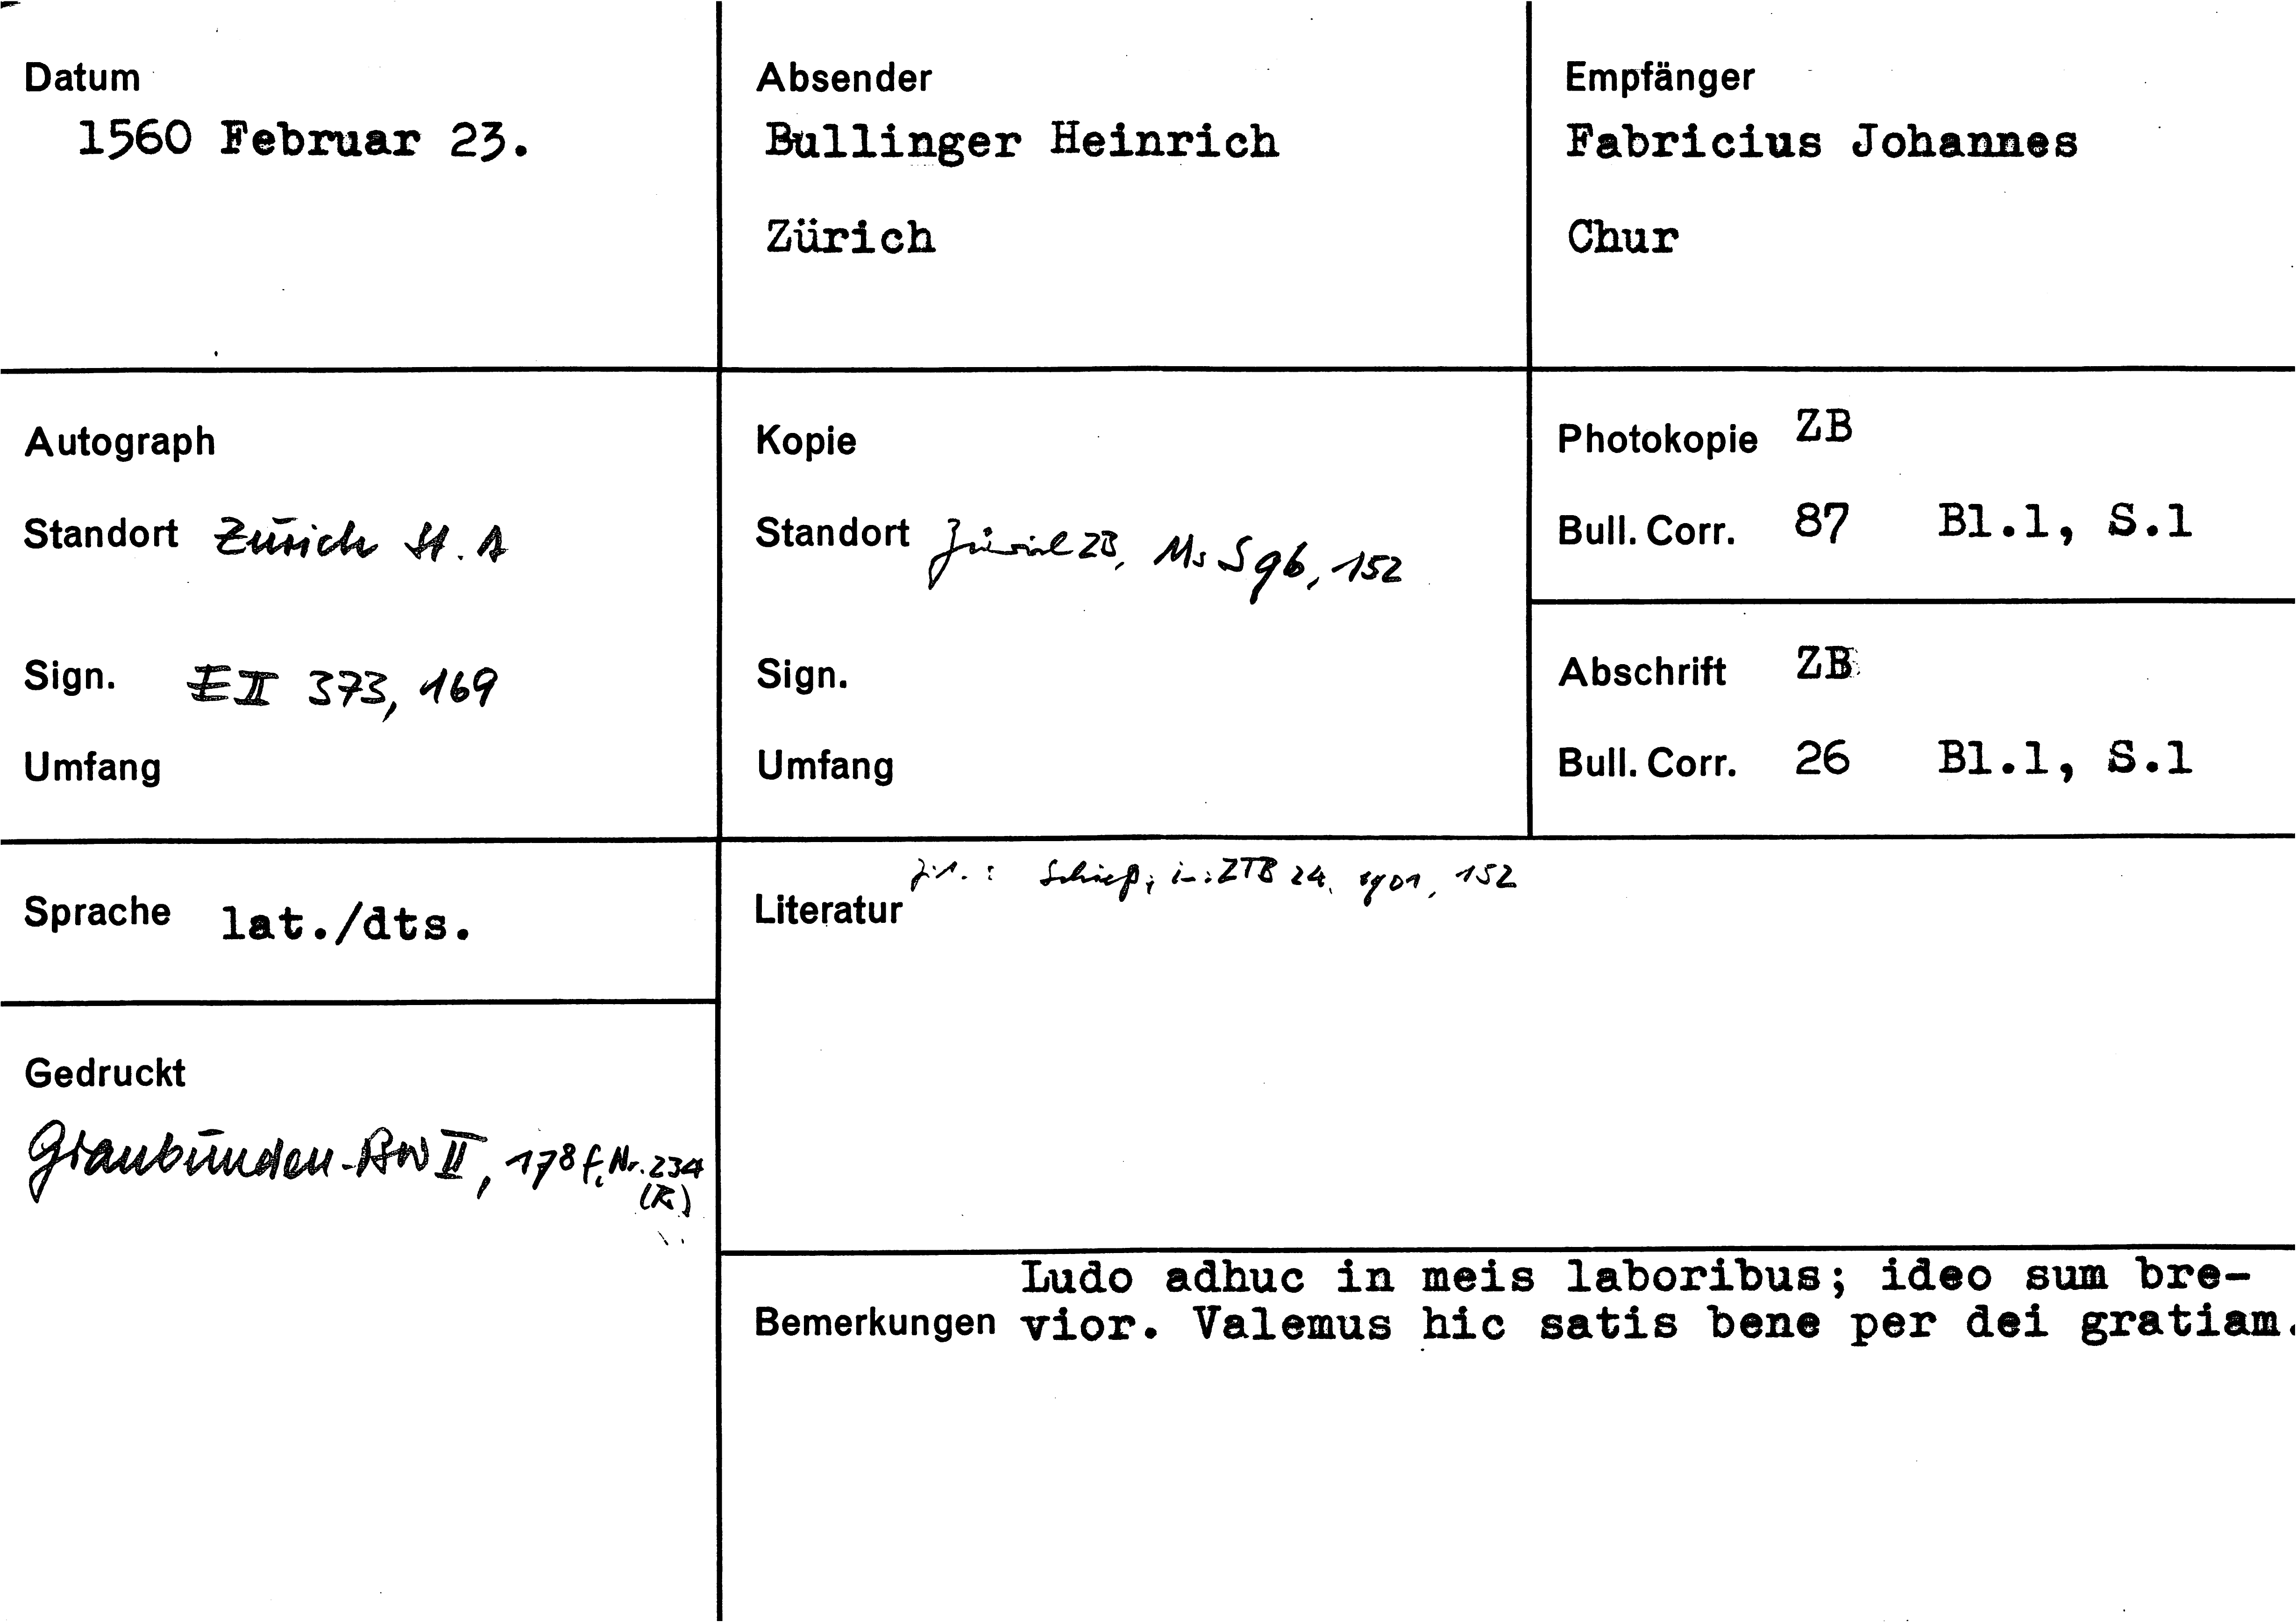 Datum
1560 Februar 23.
Absender
Bullinger Heinrich
Zürich
Empfänger
Fabricius Johannes
Chur
Autograph
Standort Zürich StA
Sign. E II 373, 169
Umfang
Kopie
Standort Zürich ZB, Ms S 96, 152
Sign.
Umfang
Photokopie ZB
Bull. Corr. 87 Bl.1, S.1
Abschrift ZB
Bull. Corr. 26 Bl.1, S.1
Sprache lat./dts.
Gedruckt
Graubünden-BW II, 178 f, Nr. 234
(R)
Schieß, in: ZTB 24, 1901, 152
Literatur
Ludo adhuc in meis laboribus; ideo sum bre-
Bemerkungen vior. Valemus hic satis bene per dei gratiam.